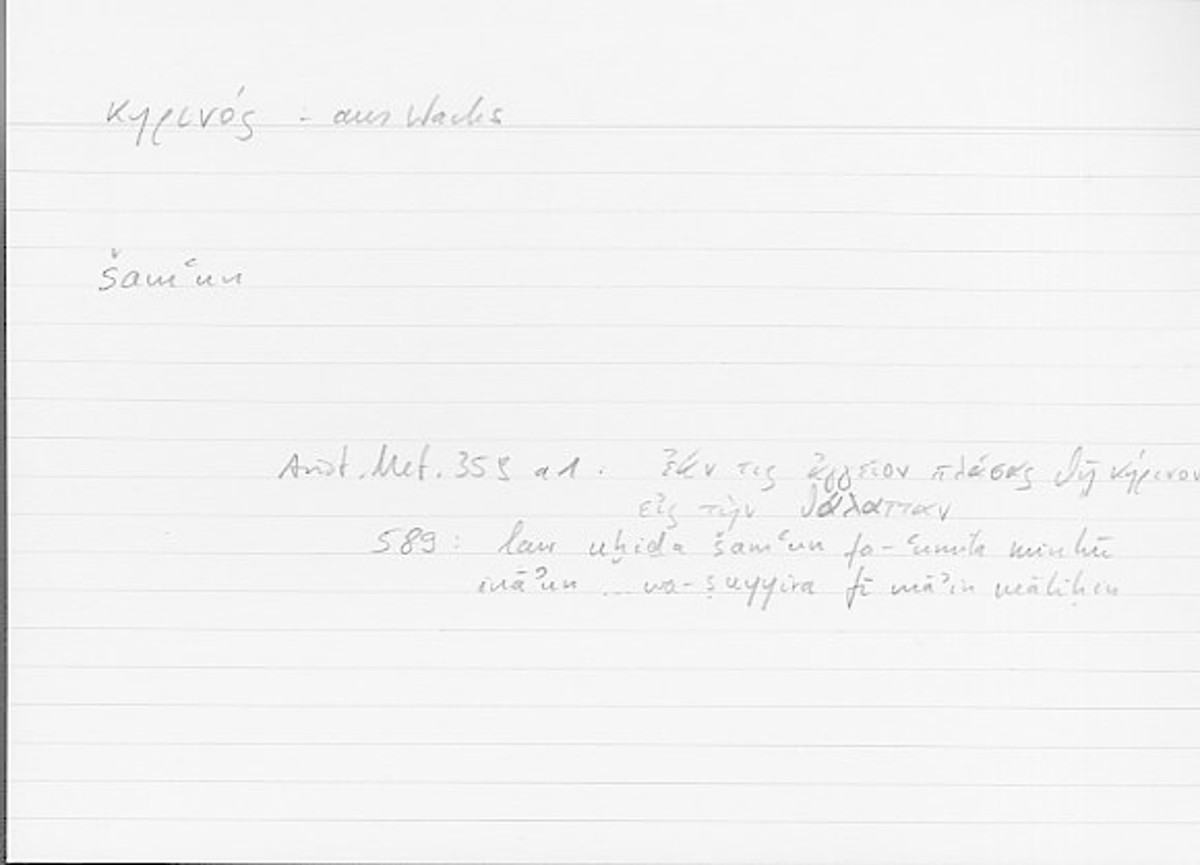 κηρινός - aus Wachs
šamʿun
Arist. Met. 359 a1. ἐάν τις ἀγγεῖον πλάσας θῇ κήρινον
εἰς τὴν θάλατταν
589: law uḫiḏa šamʿun fa-ʿumila minhū
ināʾun ... wa-ṣuyyira fī māʾin māliḥin